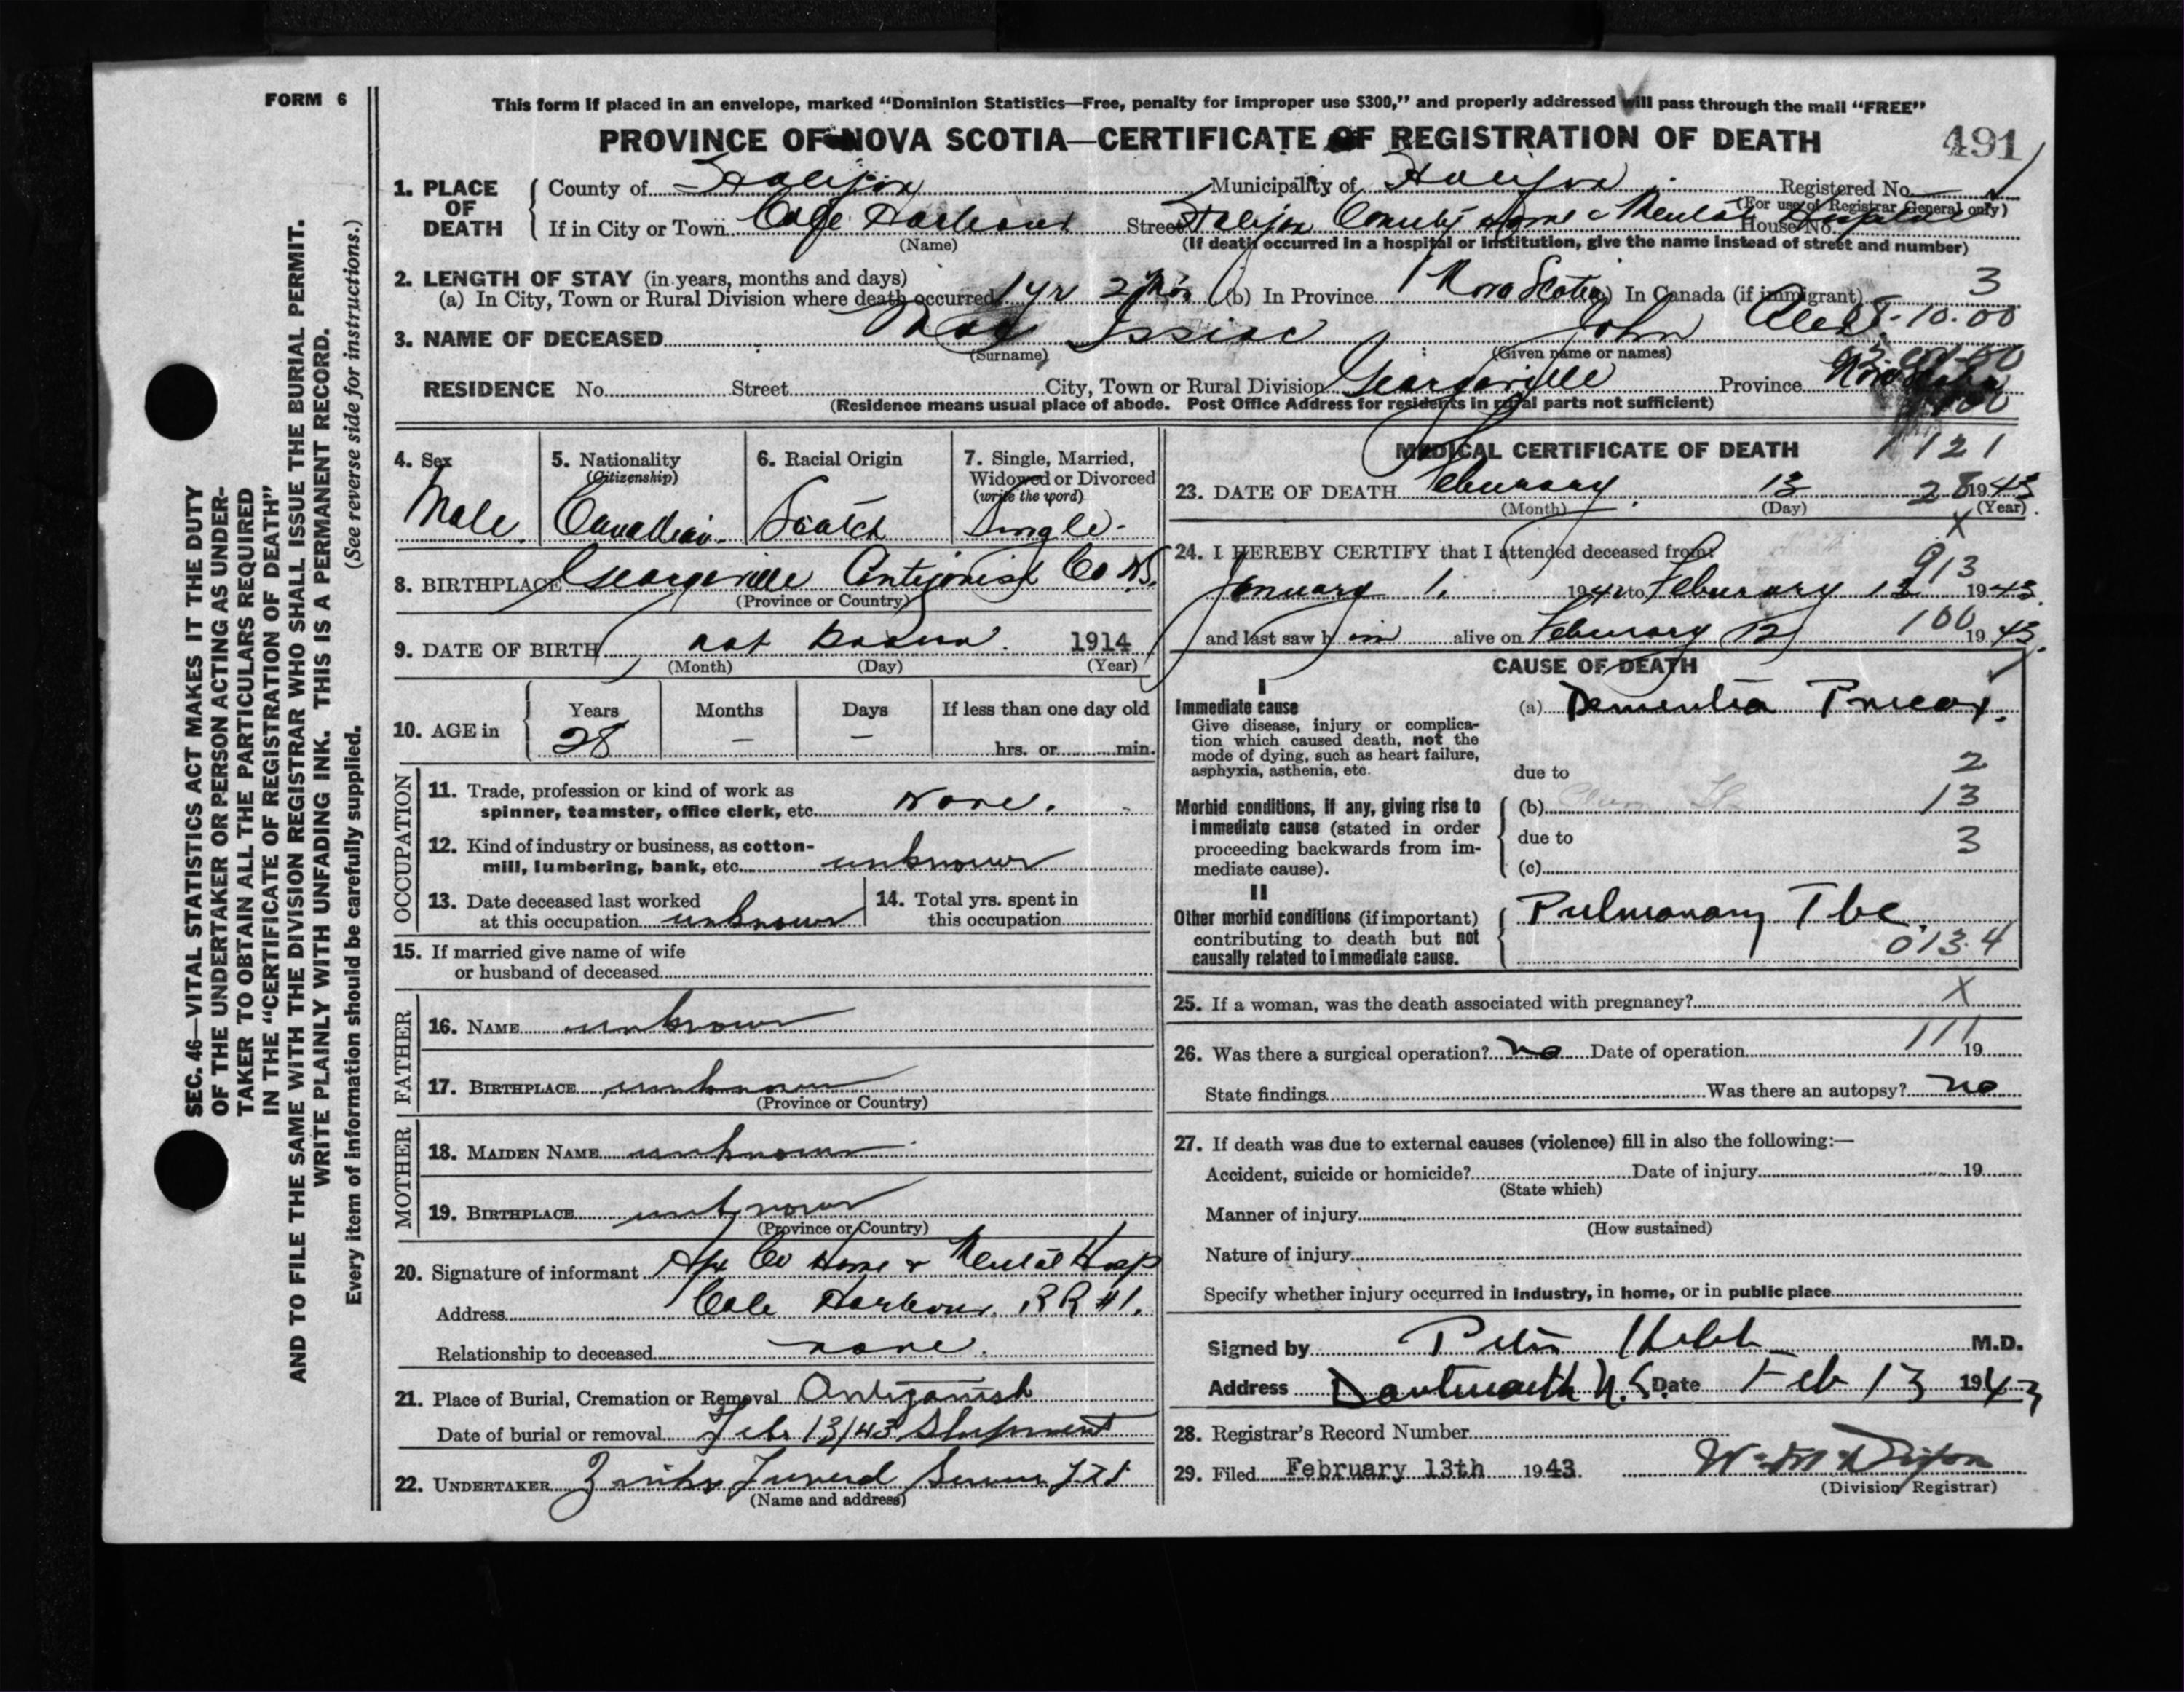 FORM 6
This form if placed in an envelope, marked “Dominion Statistics—Free, penalty for improper use $300,” and properly addressed will pass through the mail “FREE”
PROVINCE OF NOVA SCOTIA—CERTIFICATE OF REGISTRATION OF DEATH
491
SEC. 46—VITAL STATISTICS ACT MAKES IT THE DUTY
OF THE UNDERTAKER OR PERSON ACTING AS UNDER-
TAKER TO OBTAIN ALL THE PARTICULARS REQUIRED
IN THE “CERTIFICATE OF REGISTRATION OF DEATH”
AND TO FILE THE SAME WITH THE DIVISION REGISTRAR WHO SHALL ISSUE THE BURIAL PERMIT.
WRITE PLAINLY WITH UNFADING INK. THIS IS A PERMANENT RECORD.
Every item of information should be carefully supplied. (See reverse side for instructions.)
1. PLACE OF DEATH
County of Halifax Municipality of Halifax Registered No.
(For use of Registrar General only)
If in City or Town Cole Harbour Street Halifax County Home & Mental Hospital House No.
(Name) (If death occurred in a hospital or institution, give the name instead of street and number)
2. LENGTH OF STAY (in years, months and days)
(a) In City, Town or Rural Division where death occurred 1 yr 2 mos (b) In Province Nova Scotia (c) In Canada (if immigrant) 3
8-10-00
3. NAME OF DECEASED Mac Issiac John Alex
(Surname) (Given name or names)
RESIDENCE No. Street City, Town or Rural Division Georgeville Province Nova Scotia
(Residence means usual place of abode. Post Office Address for residents in rural parts not sufficient)
4. Sex 5. Nationality 6. Racial Origin 7. Single, Married,
(Citizenship) Widowed or Divorced
(write the word)
Male. Canadian. Scotch Single.
8. BIRTHPLACE Georgeville Antigonish Co NS.
(Province or Country)
9. DATE OF BIRTH not known. 1914
(Month) (Day) (Year)
10. AGE in Years Months Days If less than one day old
28 — — hrs. or min.
OCCUPATION
11. Trade, profession or kind of work as
spinner, teamster, office clerk, etc. None.
12. Kind of industry or business, as cotton-
mill, lumbering, bank, etc. unknown
13. Date deceased last worked
at this occupation unknown
14. Total yrs. spent in
this occupation
15. If married give name of wife
or husband of deceased
FATHER
16. NAME unknown
17. BIRTHPLACE unknown
(Province or Country)
MOTHER
18. MAIDEN NAME unknown
19. BIRTHPLACE unknown
(Province or Country)
20. Signature of informant Hfx Co Home & Mental Hosp
Address Cole Harbour. RR #1.
Relationship to deceased none.
21. Place of Burial, Cremation or Removal Antigonish
Date of burial or removal Feb 13/43 Shipment
22. UNDERTAKER Zinks Funeral Service Ltd
(Name and address)
MEDICAL CERTIFICATE OF DEATH
1121
23. DATE OF DEATH February 13 28 1943
(Month) (Day) (Year)
X
24. I HEREBY CERTIFY that I attended deceased from:
913
January 1. 1942 to February 13 1943
and last saw him alive on February 12 100 1943
CAUSE OF DEATH
I
Immediate cause
Give disease, injury or complica-
tion which caused death, not the
mode of dying, such as heart failure,
asphyxia, asthenia, etc.
(a) Dementia Precox.
due to 2
Morbid conditions, if any, giving rise to
immediate cause (stated in order
proceeding backwards from im-
mediate cause).
(b) 13
due to 3
(c)
II
Other morbid conditions (if important)
contributing to death but not
causally related to immediate cause.
Pulmonary Tbc.
013.4
25. If a woman, was the death associated with pregnancy? X
111
26. Was there a surgical operation? no Date of operation 19
State findings Was there an autopsy? no
27. If death was due to external causes (violence) fill in also the following:—
Accident, suicide or homicide? Date of injury 19
(State which)
Manner of injury
(How sustained)
Nature of injury
Specify whether injury occurred in industry, in home, or in public place
Signed by Peter M.D.
Address Dartmouth N.S. Date Feb 13 1943
28. Registrar's Record Number
29. Filed February 13th 1943.
(Division Registrar)